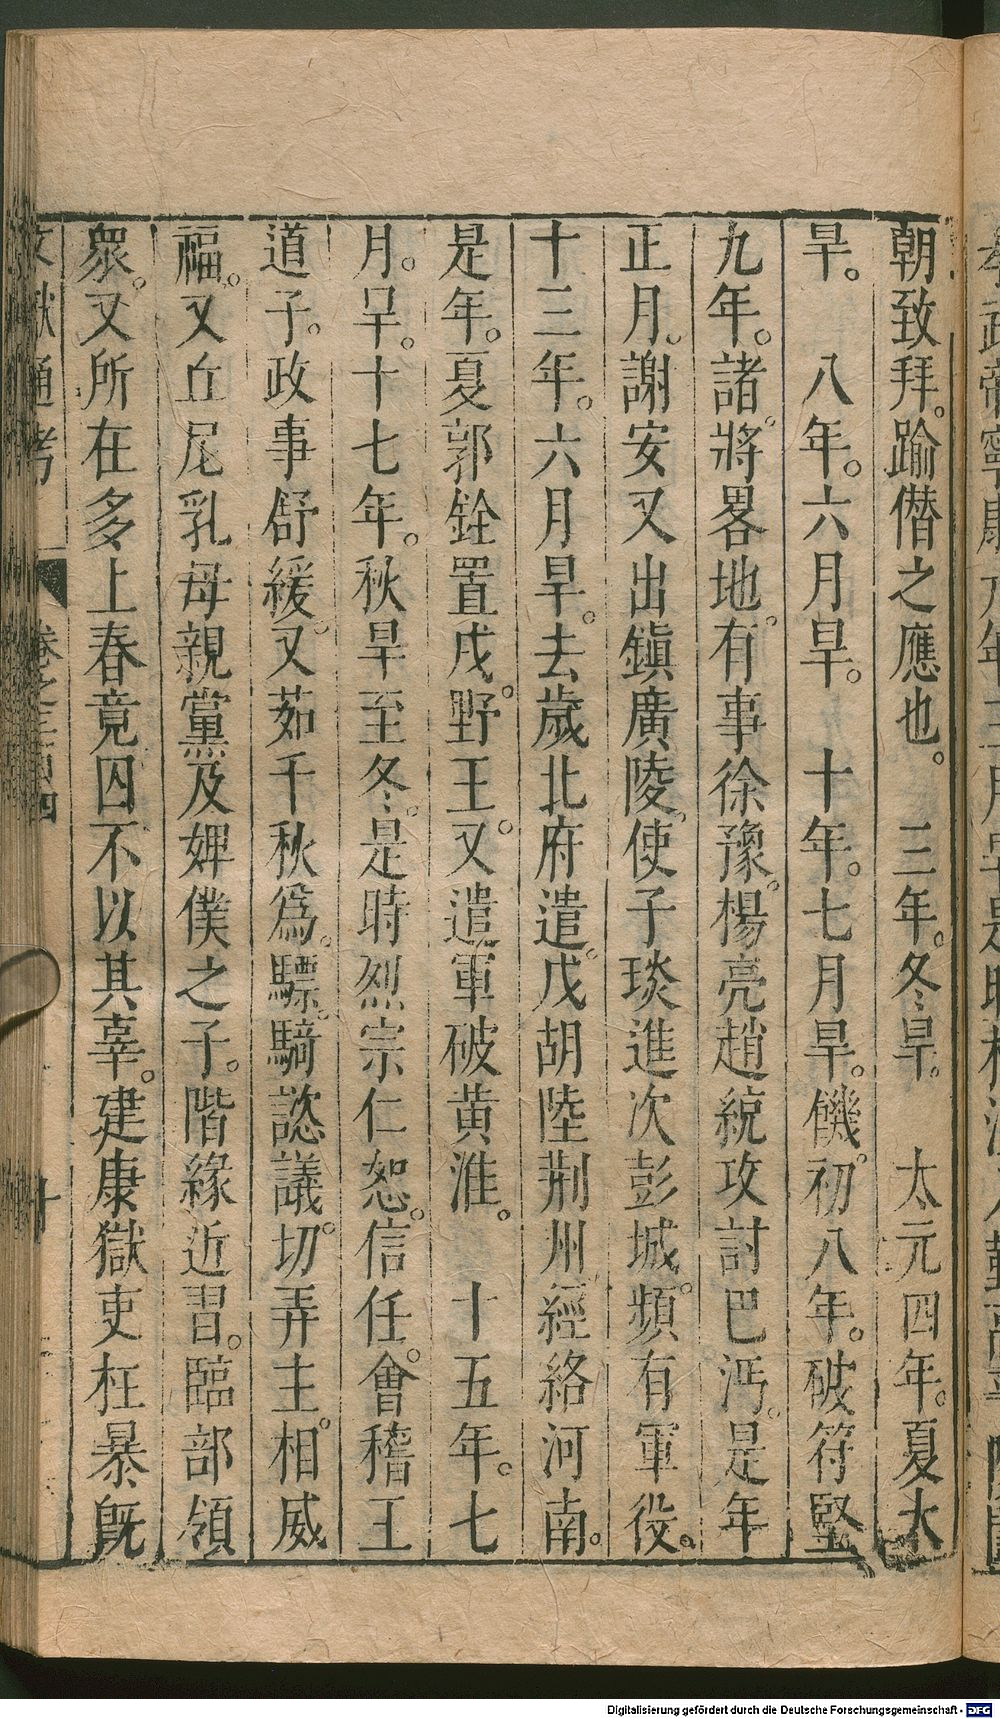 朝致拜。踰僭之應也。 三年。冬旱。 太元四年。夏大
旱。 八年。六月旱。 十年。七月旱。饑。初八年。破苻堅
九年。諸將畧地。有事徐豫。楊亮趙統攻討巴沔。是年
正月。謝安又出鎮廣陵。使子琰進次彭城。頻有軍役。
十三年。六月旱。去歲北府遣。戍胡陸荆州經絡河南。
是年。夏郭銓置戍。野王。又遣軍破黃淮。 十五年。七
月。旱。十七年。秋旱至冬。是時烈宗仁恕。信任。會稽王
道子。政事舒緩。又茹千秋爲。驃。騎諮議。切弄主。相威
福。又丘尼乳母親黨及婢僕之子。階緣近習。臨部領
衆。又所在多上春竟囚不以其辜。建康獄吏枉暴旣
文獻通考 卷之三百四 十
Digitalisierung gefördert durch die Deutsche Forschungsgemeinschaft - DFG